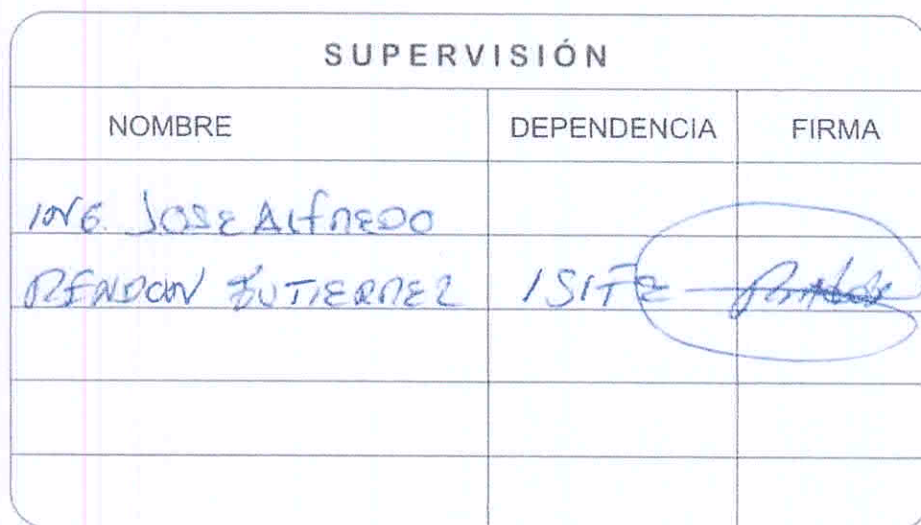 SUPERVISIÓN
NOMBRE DEPENDENCIA FIRMA
ING. JOSE ALFREDO
RENDON GUTIERREZ ISIFE